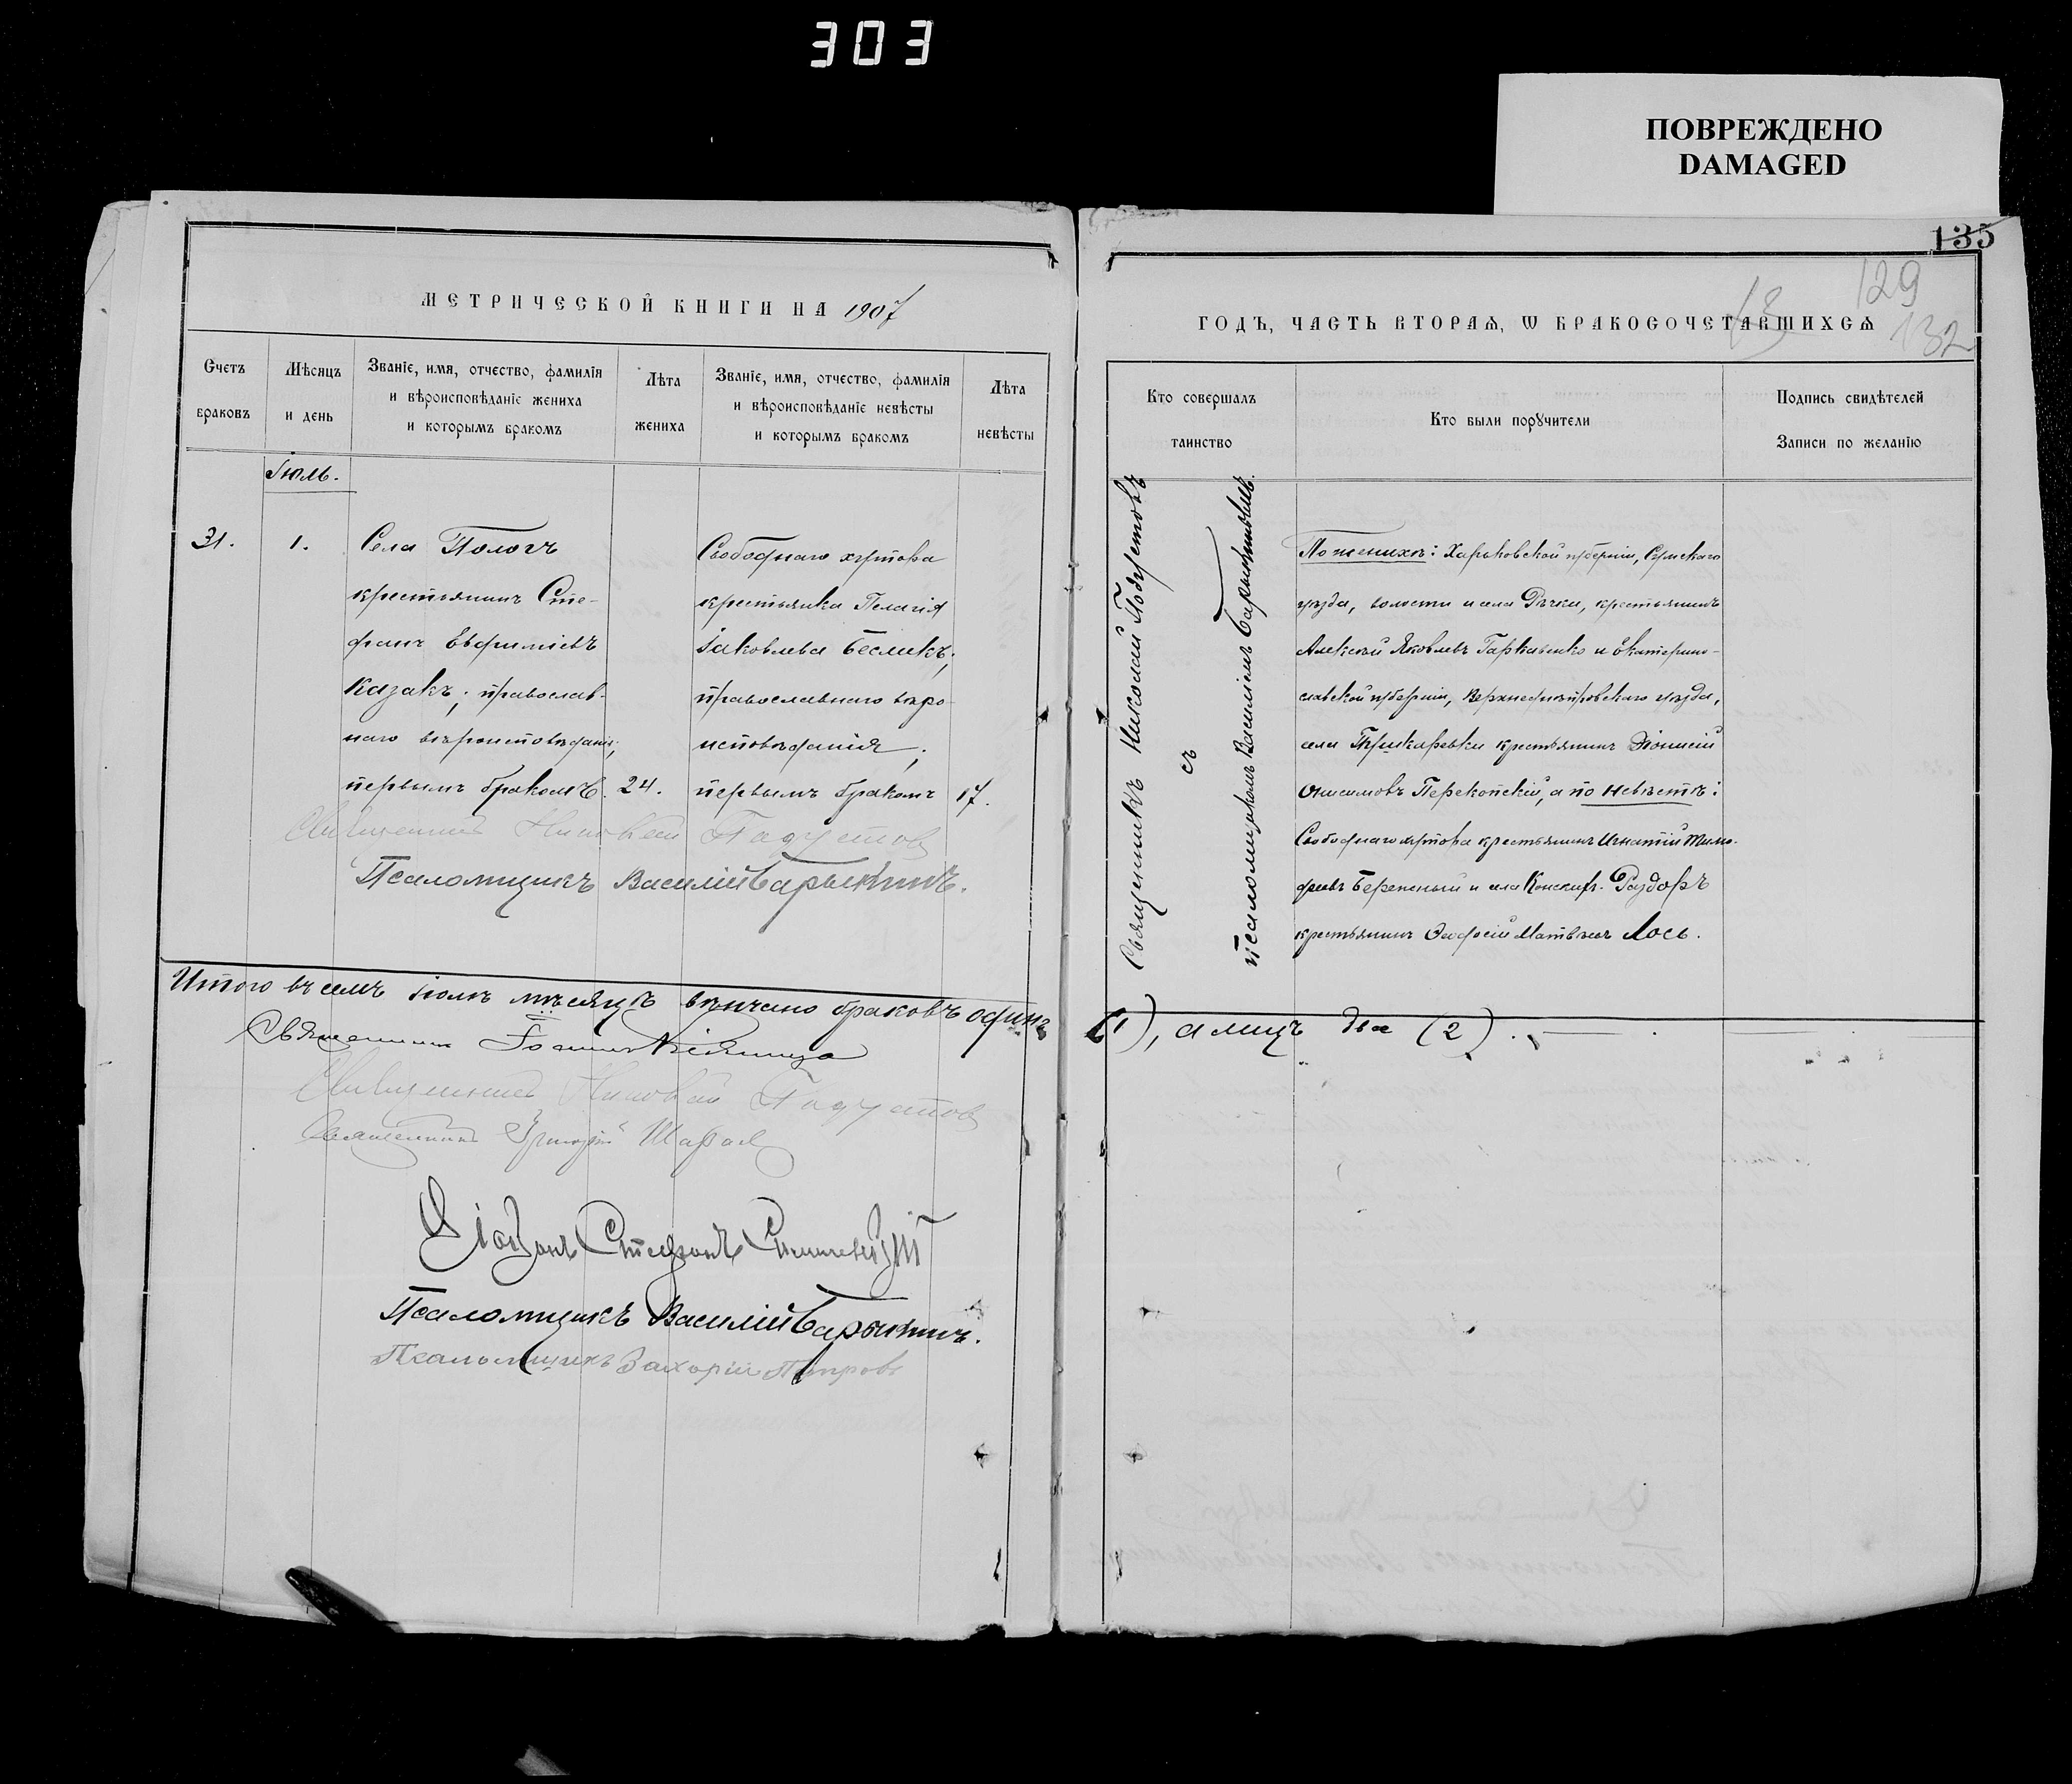 303
ПОВРЕЖДЕНО
DAMAGED
135
129
13
132
МЕТРИЧЕСКОЙ КНИГИ НА 1907
ГОДЪ, ЧАСТЬ ВТОРАЯ, Ѡ БРАКОСОЧЕТАВШИХСЯ
Счетъ браковъ
Мѣсяцъ и день
Званіе, имя, отчество, фамилія
и вѣроисповѣданіе жениха
и которымъ бракомъ
Лѣта жениха
Званіе, имя, отчество, фамилія
и вѣроисповѣданіе невѣсты
и которымъ бракомъ
Лѣта невѣсты
Кто совершалъ таинство
Кто были порꙋчители
Подпись свидѣтелей
Записи по желанію
Іюль.
31.
1.
Села Пологъ
крестьянинъ Сте-
фанъ Евфиміевъ
Казакъ; православ-
наго вѣроисповѣданія;
первымъ бракомъ.
24.
Свободнаго хутора
крестьянка Пелагія
Іаковлева Бесликъ;
православнаго вѣро-
исповѣданія;
первымъ бракомъ
17.
Священникъ Николай
Псаломщикъ Василій Барыкинъ.
Священникъ Николай
съ
псаломщикомъ Василіемъ
По женихѣ: Харьковской губерніи, Сумскаго
уѣзда, волости и села Рѣчки, крестьянинъ
Алексѣй Яковлевъ Гаркавенко и Екатерино-
славской губерніи, Верхнеднѣпровскаго уѣзда,
села Пушкаревки крестьянинъ Діонисій
Онисимовъ Перекопскій, а по невѣстѣ:
Свободнаго хутора крестьянинъ Игнатій Тимо-
феевъ Березный и села Конскихъ-Раздоръ
крестьянинъ Феодосій Матвѣевъ Лось.
Итого въ семъ іюлѣ мѣсяцѣ вѣнчано браковъ одинъ (1), а лицъ два (2).
Священникъ Іоаннъ
Священникъ Николай
Священникъ Григорій
Діаконъ Стефанъ
Псаломщикъ Василій Барыкинъ.
Псаломщикъ Захарій Петровъ